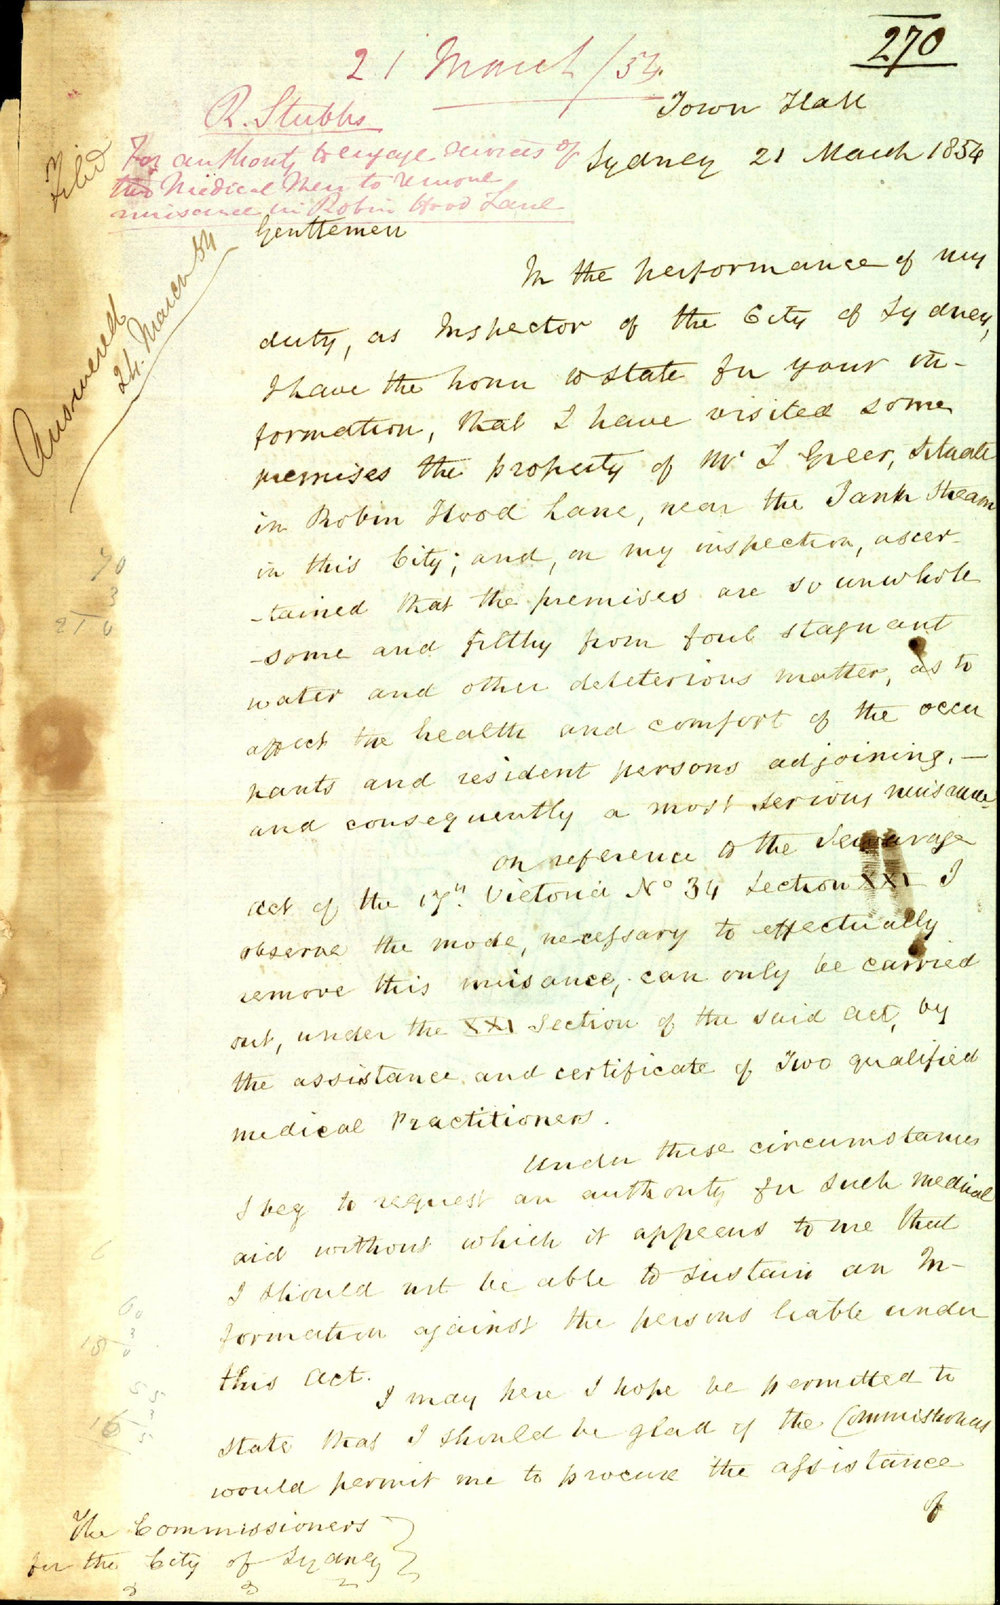 270
21 March/54
R. Stubbs
For authority to engage services of
two Medical Men to remove
nuisance in Robin Hood Lane
Filed
Answered
24. March 54
Town Hall
Sydney 21 March 1854
Gentlemen
In the performance of my
duty, as Inspector of the City of Sydney,
I have the honor to state for your in-
formation, that I have visited some
premises the property of Mr I Greer, situate
in Robin Hood Lane, near the Tank Stream
in this City; and, on my inspection, ascer-
-tained that the premises are so unwhole
-some and filthy from foul stagnant
water and other deleterious matter, as to
affect the health and comfort of the occu
pants and resident persons adjoining, —
and consequently a most serious nuisance
On reference to the Sewerage
act of the 17th Victoria No 34 Section XXI I
observe the mode, necessary to effectually
remove this nuisance, can only be carried
out, under the XXI Section of the said act, by
the assistance and certificate of Two qualified
medical Practitioners.
Under these circumstances
I beg to request an authority for such medical
aid without which it appears to me that
I should not be able to sustain an In-
formation against the persons liable under
this Act.
I may here I hope be permitted to
state that I should be glad if the Commissioners
would permit me to procure the assistance
of
The Commissioners
for the City of Sydney